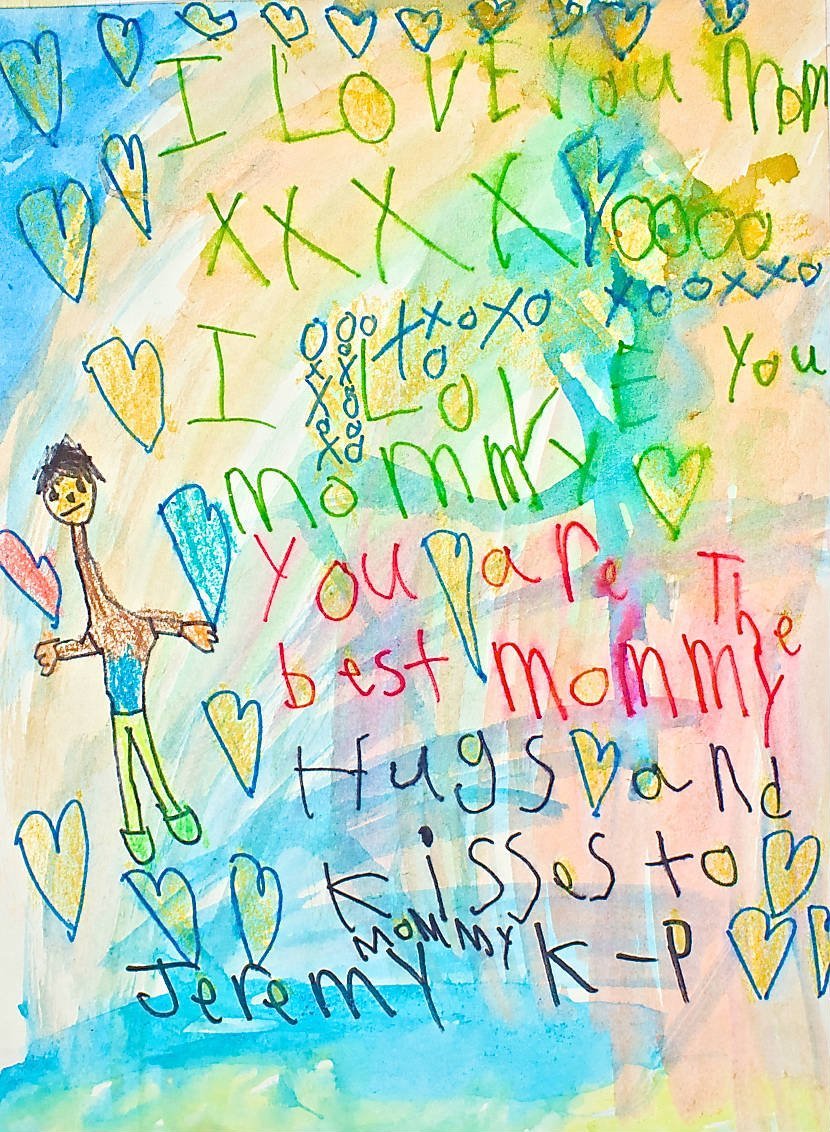 I LOVE You Mom
XXXX oooo
xooxxo
ooo xxoxo
I LOVE You
mommy
You are The
best mommy
Hugs and
kisses to
mommy
Jeremy K-P